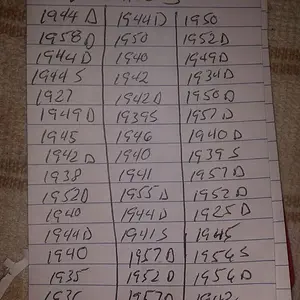 1944 D 1944 D 1950
1958 D 1950 1952 D
1944 D 1940 1949 D
1944 S 1942 1934 D
1927 1942 D 1950 D
1949 D 1939 S 1957 D
1945 1946 1940 D
1942 D 1940 1939 S
1938 1941 1957 D
1952 D 1955 D 1952 D
1940 1944 D 1925 D
1944 D 1941 S 1945
1940 1957 D 1956 S
1935 1952 D 1956 D
1936 1957 D 1942